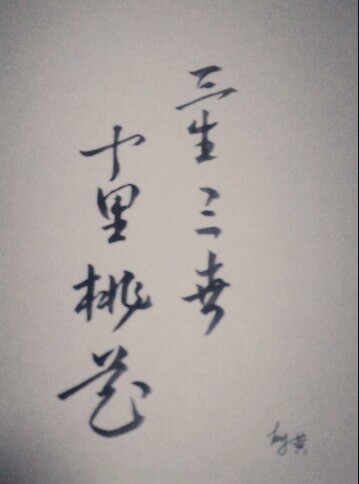 三生三世
十里桃花
黄